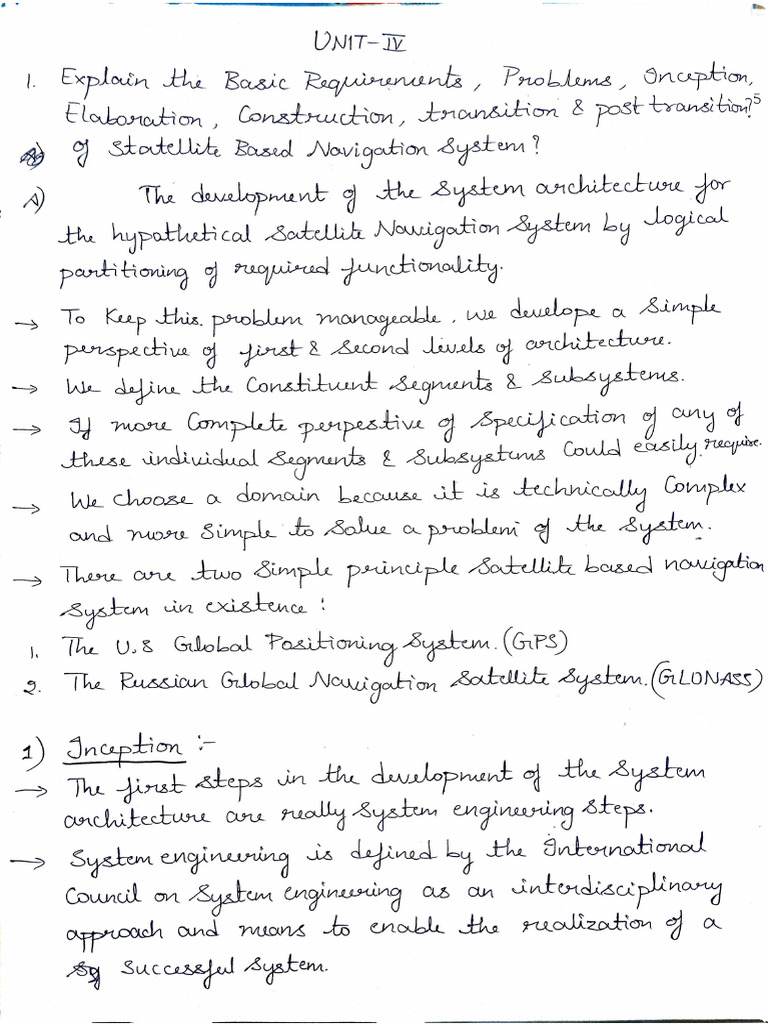 UNIT-IV
1. Explain the Basic Requirements, Problems, Inception,
Elaboration, Construction, transition & post transition?5
of Statellite Based Navigation System?
A) The development of the System architecture for
the hypothetical Satellite Navigation System by logical
partitioning of required functionality.
→ To Keep this. problem manageable, we develope a Simple
perspective of first & Second levels of architecture.
→ We define the Constituent Segments & Subsystems.
→ If more Complete perpestive of Specification of any of
these individual Segments & Subsystems Could easily require.
→ We choose a domain because it is technically Complex
and more Simple to Solve a problem of the System.
→ There are two Simple principle Satellite based navigation
System in existence :
1. The U.S Global Positioning System. (GPS)
2. The Russian Global Navigation Satellite System. (GLONASS)
1) Inception :-
→ The first Steps in the development of the System
architecture are really System engineering Steps.
→ System engineering is defined by the International
Council on System engineering as an interdisciplinary
approach and means to enable the realization of a
Successful System.